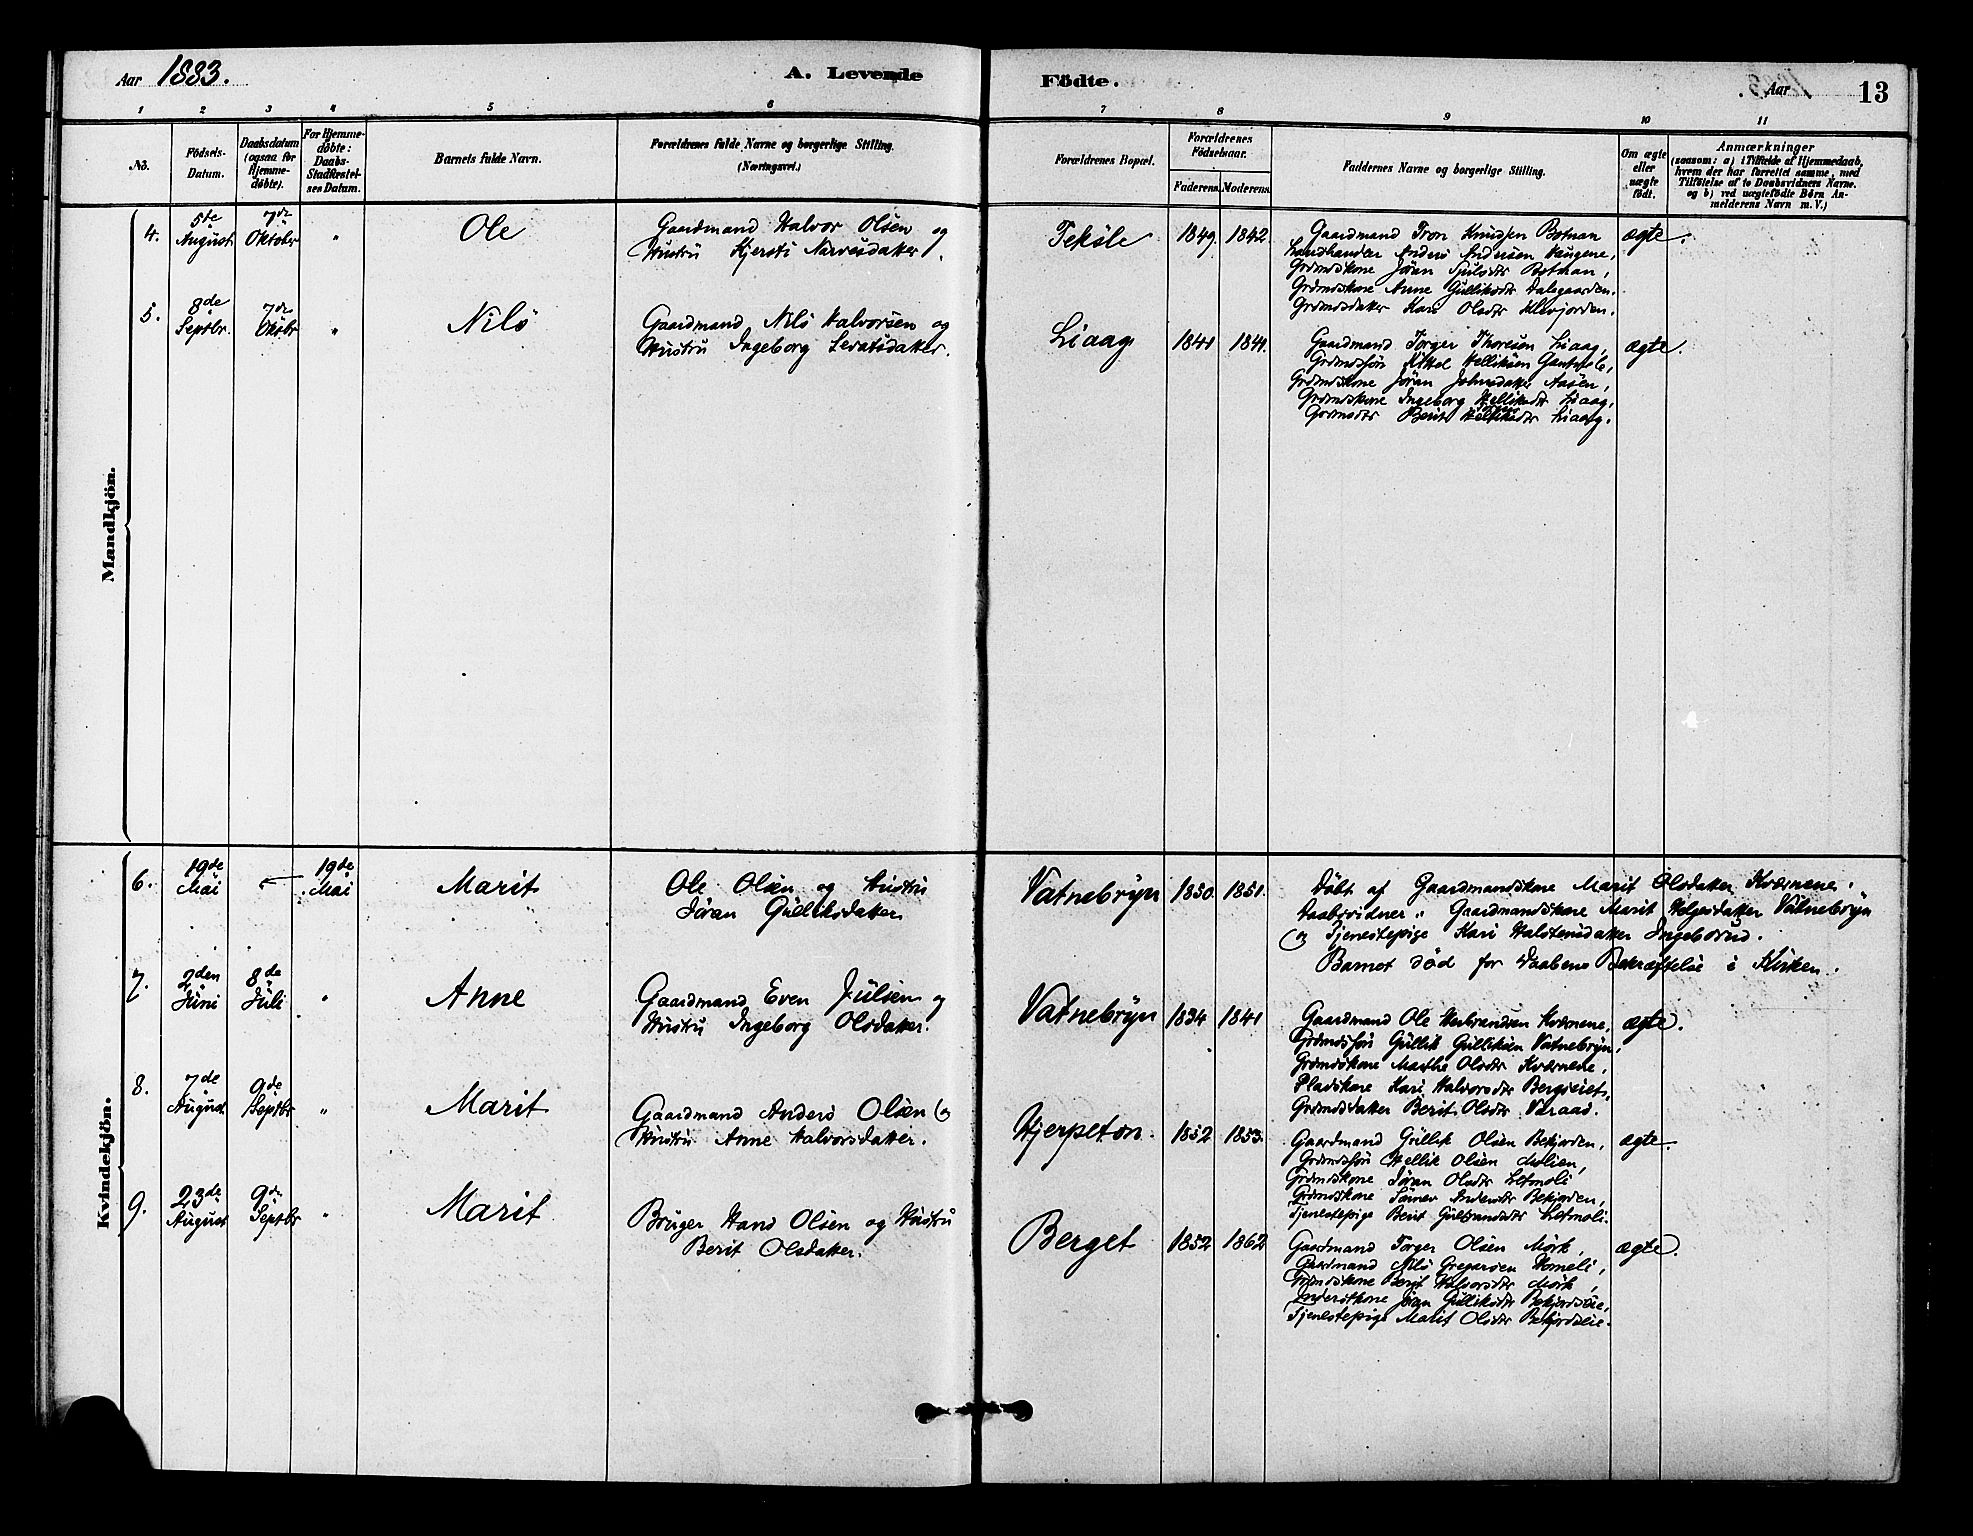 Aar 1883.
A. Levende Födte.
Aar
13
1 2 3 4 5 6 7 8 9 10 11
No.
Födsels-Datum.
Daabsdatum (ogsaa for Hjemme-døbte).
For Hjemme-døbte: Daabs-Stadfæstel-ses Datum.
Barnets fulde Navn.
Forældrenes fulde Navne og borgerlige Stilling.
(Næringsvei.)
Forældrenes Bopæl.
Forældrenes Födselsaar.
Faderens. Moderens.
Faddernes Navne og borgerlige Stilling.
Om ægte eller uægte født.
Anmærkninger
(saasom: a) i Tilfælde af Hjemmedaab,
hvem der har forrettet samme, med
Tilföielse af to Daabsvidners Navne.
og b) ved uægtefødte Börn An-
melderens Navn m. V.)
Mandkjön.
4. 5te August 7de Oktober " Ole
Gaardmand Halvor Olsen og
Hustru Kjersti Narvesdatter.
Teksle 1849. 1842.
Gaardmand Tron Knudsen Botnan
Landhandler Anders Andersen Haugene,
Grdmdskone Jøran Sjulsdtr Botnan,
Grdmdskone Anne Gulliksdtr Dalegaarden.
Grdmdsdatter Kari Olsdtr Klevjorden.
ægte.
5. 8de Septbr. 7de Oktbr " Nils
Gaardmand Nils Halvorsen og
Hustru Ingeborg Levorsdatter.
Liaag 1841 1841.
Gaardmand Torger Thoresen Liaag,
Grdmdssøn Kittel Helliksen
Grdmdskone Jøran Johnsdatter Aasen,
Grdmdskone Ingeborg Helliksdtr Liaag,
Grdmdsdtr Berit Liaag.
ægte.
Kvindekjön.
6. 19de Mai 19de Mai Marit
Ole Olsen og Hustru
Jøran Gulliksdatter
Vatnebryn 1850. 1851.
Døbt af Gaardmandskone Marit Olsdatter Kværnene.
Daabsvidner: Gaardmandskone Marit Helgesdatter Vatnebryn
og Tjenestepige Kari Halstensdatter Ingeborud.
Barnet død før Daabens Bekræftelse i Kirken.
7. 2den Juni 8de Juli " Anne
Gaardmand Even Julsen og
Hustru Ingeborg Olsdatter.
Vatnebryn 1834 1841
Gaardmand Ole Herbrandsen Kværnene,
Grdmdssøn Gullik Gulliksen Vatnebryn,
Grdmdskone Marthe Olsdtr Kværnene,
Pladskone Kari Halvorsdtr Bergseiet,
Grdmdsdatter Berit Olsdtr Varaas.
ægte.
8. 7de August 9de Septbr " Marit
Gaardmand Anders Olsen og
Hustru Anne Halvorsdatter.
Hjerpeton. 1852 1853.
Gaardmand Gullik Olsen Bekjorden,
Grdmdssøn Hellik Olsen Molien,
Grdmdskone Jøran Olsdtr Letmoli
Grdmdskone Andersdtr Bekjorden,
Tjenestepige Berit Gulbrandsdtr Letmoli.
ægte.
9. 23de August 9de Septbr " Marit
Bruger Hans Olsen og Hustru
Berit Olsdatter.
Berget 1852 1862
Gaardmand Torger Olsen Mørk,
Gaardmand Nils Gregarsen Homeli,
Grdmdskone Berit Halvorsdtr Mørk,
Inderstkone Jøran Gulliksdtr Bekjordseie,
Tjenestepige Marit Olsdtr Bekjordseie.
ægte.